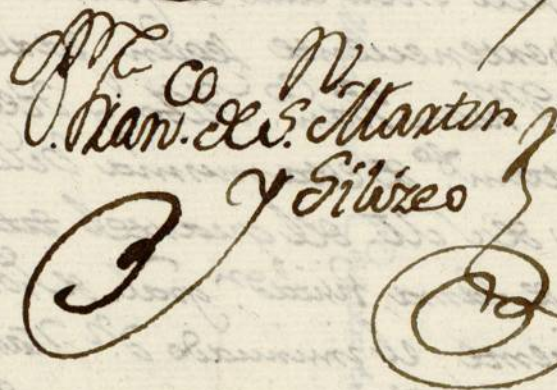 Fran.co de S. Martin
y Gilizeo